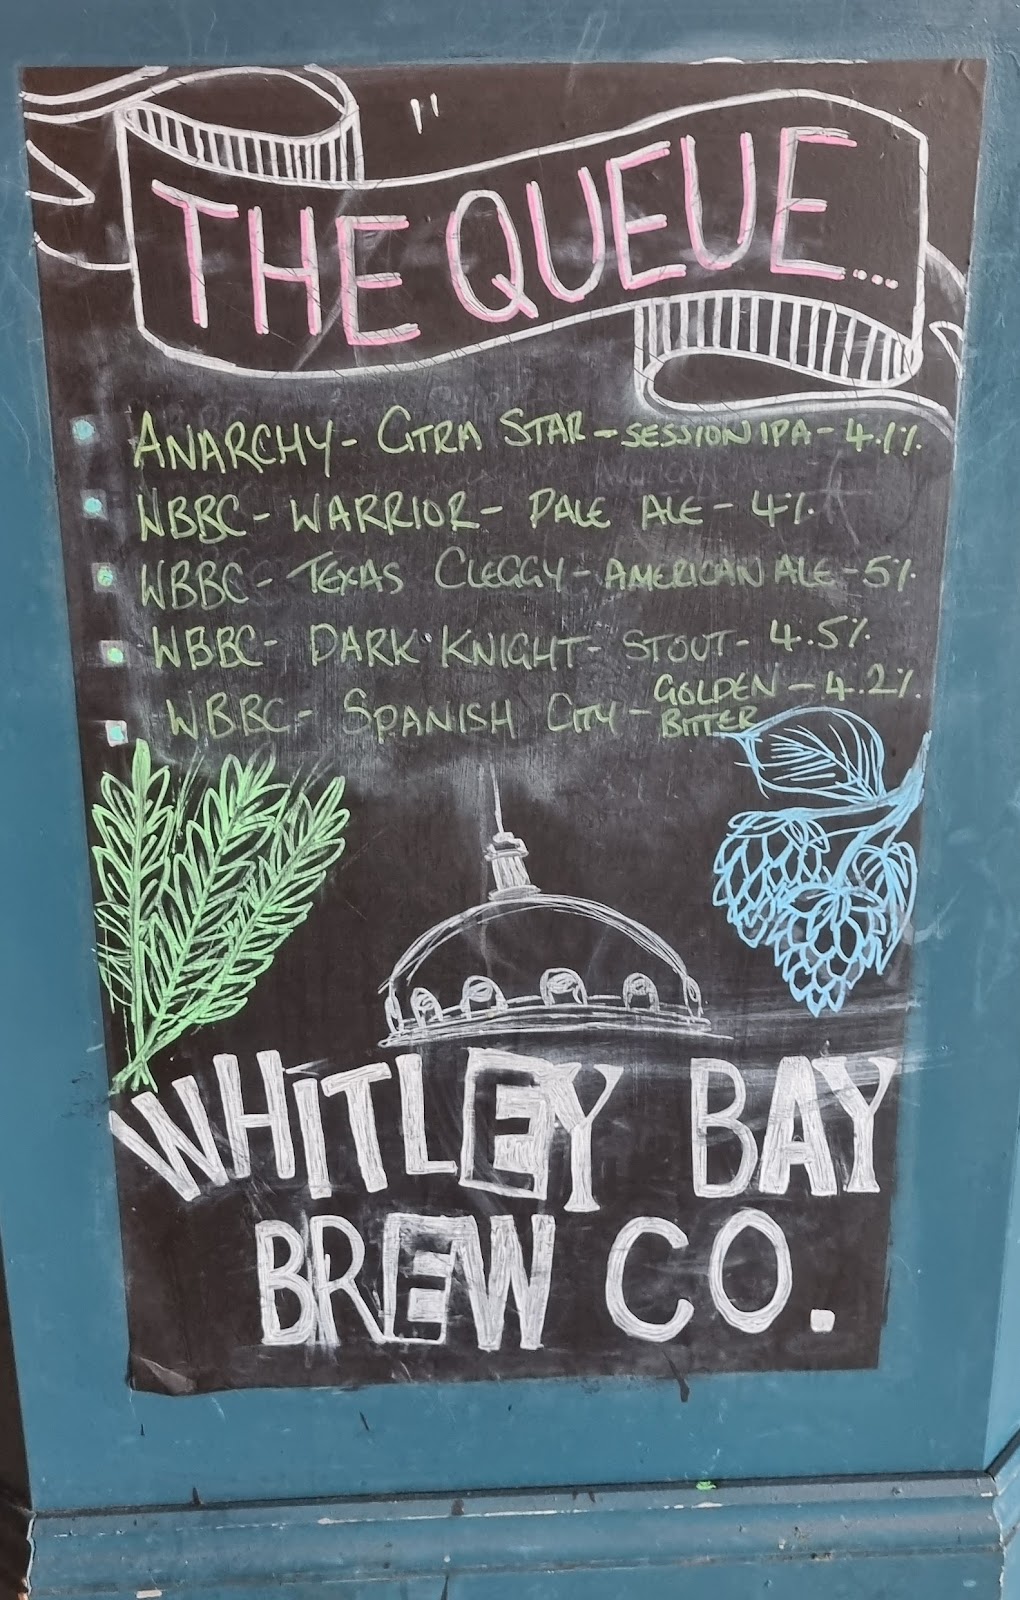 "
THE QUEUE....
ANARCHY - CITRA STAR - SESSION IPA - 4.1%
WBBC - WARRIOR - PALE ALE - 4%
WBBC - TEXAS CLEGGY - AMERICAN ALE - 5%
WBBC - DARK KNIGHT - STOUT - 4.5%
WBBC - SPANISH CITY - GOLDEN BITTER - 4.2%
WHITLEY BAY
BREW CO.